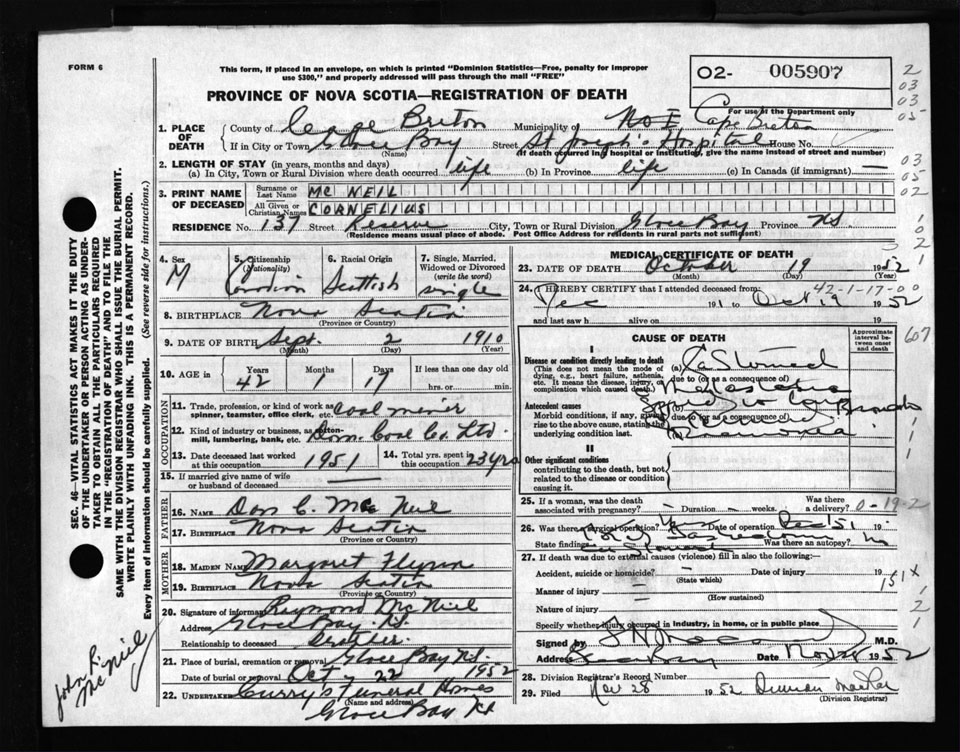 FORM 6
This form, if placed in an envelope, on which is printed "Dominion Statistics—Free, penalty for improper
use $300," and properly addressed will pass through the mail "FREE"
02- 005907
PROVINCE OF NOVA SCOTIA—REGISTRATION OF DEATH
For use of the Department only
1. PLACE OF DEATH
County of Cape Breton Municipality of Cape Breton
If in City or Town Glace Bay Street St Joseph's Hospital House No.
(Name) (If death occurred in a hospital or institution, give the name instead of street and number)
2. LENGTH OF STAY (in years, months and days)
(a) In City, Town or Rural Division where death occurred life (b) In Province life (c) In Canada (if immigrant) —
3. PRINT NAME OF DECEASED
Surname or Last Name MC NEIL
All Given or Christian Names CORNELIUS
RESIDENCE No. 137 Street City, Town or Rural Division Glace Bay Province NS.
(Residence means usual place of abode. Post Office Address for residents in rural parts not sufficient)
4. Sex M
5. Citizenship (Nationality)
6. Racial Origin Scottish
7. Single, Married, Widowed or Divorced (write the word) single
8. BIRTHPLACE Nova Scotia
(Province or Country)
9. DATE OF BIRTH Sept. 2 1910
(Month) (Day) (Year)
10. AGE in Years 42 Months 1 Days 17 If less than one day
hrs. or min.
OCCUPATION
11. Trade, profession, or kind of work as spinner, teamster, office clerk, etc. Coal miner
12. Kind of industry or business, as cotton-mill, lumbering, bank, etc. Dom. Coal Co. Ltd
13. Date deceased last worked at this occupation 1951
14. Total yrs. spent in this occupation 23 yrs
15. If married give name of wife or husband of deceased —
FATHER
16. NAME Dan C. Mc Neil
17. BIRTHPLACE Nova Scotia
(Province or Country)
MOTHER
18. MAIDEN NAME Margaret Flynn
19. BIRTHPLACE Nova Scotia
(Province or Country)
20. Signature of informant Raymond Mc Neil
Address Glace Bay, NS.
Relationship to deceased brother
21. Place of burial, cremation or removal Glace Bay NS.
Date of burial or removal Oct 22 1952
22. Undertaker Curry's Funeral Homes
(Name and address)
Glace Bay NS
MEDICAL CERTIFICATE OF DEATH
23. DATE OF DEATH October 19 1952
(Month) (Day) (Year)
42-1-17-00
24. I HEREBY CERTIFY that I attended deceased from
Dec 191 to Oct 19 1952
and last saw h alive on 19
CAUSE OF DEATH
Approximate interval between onset and death
I
Disease or condition directly leading to death
(This does not mean the mode of dying, e.g., heart failure, asthenia, etc. It means the disease, injury, or complication which caused death.)
(a) Ca Stomach
due to (or as a consequence of)
Antecedent causes
Morbid conditions, if any, giving rise to the above cause, stating the underlying condition last.
(b)
due to (or as a consequence of)
Broncho
Pneumonia
II
Other significant conditions
contributing to the death, but not related to the disease or condition causing it.
25. If a woman, was the death associated with pregnancy? — Duration — weeks. Was there a delivery?
0-19-2
26. Was there surgical operation? Date of operation Dec '51 19
State findings Was there an autopsy? no
27. If death was due to external causes (violence) fill in also the following:
Accident, suicide or homicide? Date of injury 19
(State which)
Manner of injury
(How sustained)
151X
Nature of injury
Specify whether injury occurred in industry, in home, or in public place
Signed by M.D.
Address Glace Bay Date Nov 1952
28. Division Registrar's Record Number
29. Filed Nov 28 1952 Duncan
(Division Registrar)
SEC. 46—VITAL STATISTICS ACT MAKES IT THE DUTY
OF THE UNDERTAKER OR PERSON ACTING AS UNDER-
TAKER TO OBTAIN ALL THE PARTICULARS REQUIRED
IN THE "REGISTRATION OF DEATH" AND TO FILE THE
SAME WITH THE DIVISION REGISTRAR WHO SHALL ISSUE THE BURIAL PERMIT.
WRITE PLAINLY WITH UNFADING INK. THIS IS A PERMANENT RECORD.
Every item of information should be carefully supplied. (See reverse side for instructions.)
John R.
McNeil
2
03
03
05
03
05
02
607